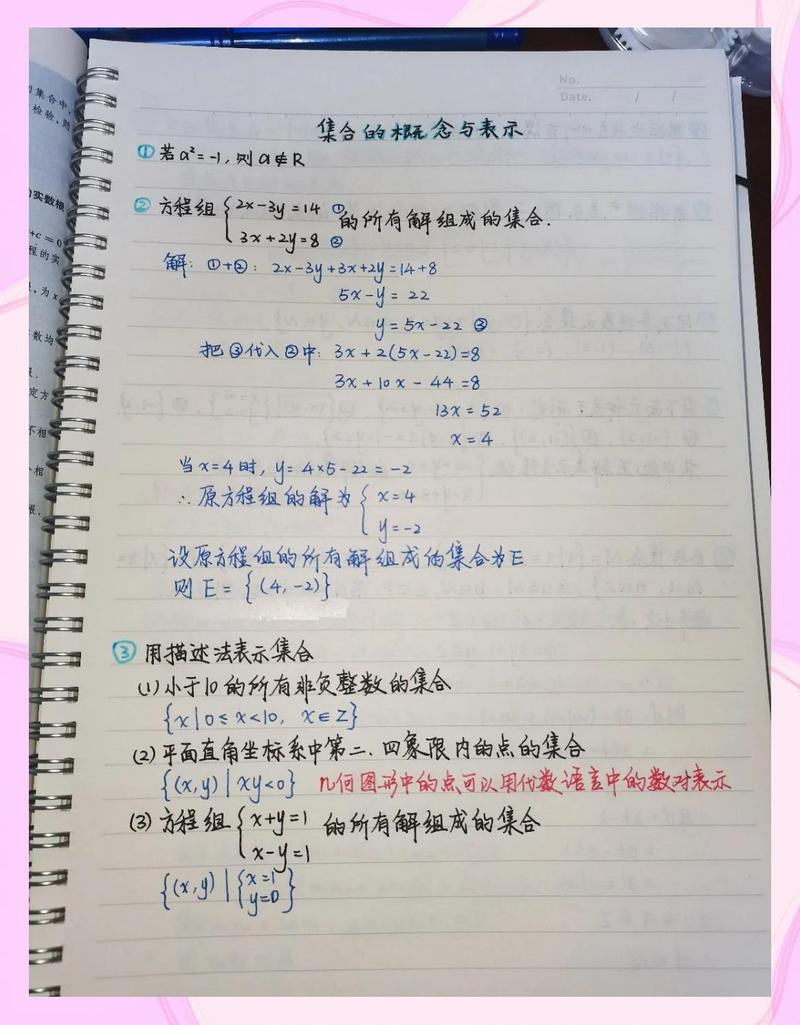 No.
Date. / /
集合中,
检验,则
实数根
+c=0
程的实
,为x
数均
定方
不相
相
根.
集合的概念与表示
① 若a²=-1,则a∉R
② 方程组{2x-3y=14 ①
3x+2y=8 ②
的所有解组成的集合.
解: ①+②: 2x-3y+3x+2y=14+8
5x-y=22
y=5x-22 ③
把③代入②中: 3x+2(5x-22)=8
3x+10x-44=8
13x=52
x=4
当x=4时, y=4×5-22=-2
∴原方程组的解为{x=4
y=-2
设原方程组的所有解组成的集合为E
则E={(4,-2)}
③ 用描述法表示集合
(1)小于10的所有非负整数的集合
{x|0≤x<10, x∈Z}
(2)平面直角坐标系中第二、四象限内的点的集合
{(x,y)|xy<0} 几何图形中的点可以用代数语言中的数对表示
(3)方程组{x+y=1
x-y=1
的所有解组成的集合
{(x,y)|{x=1
y=0}